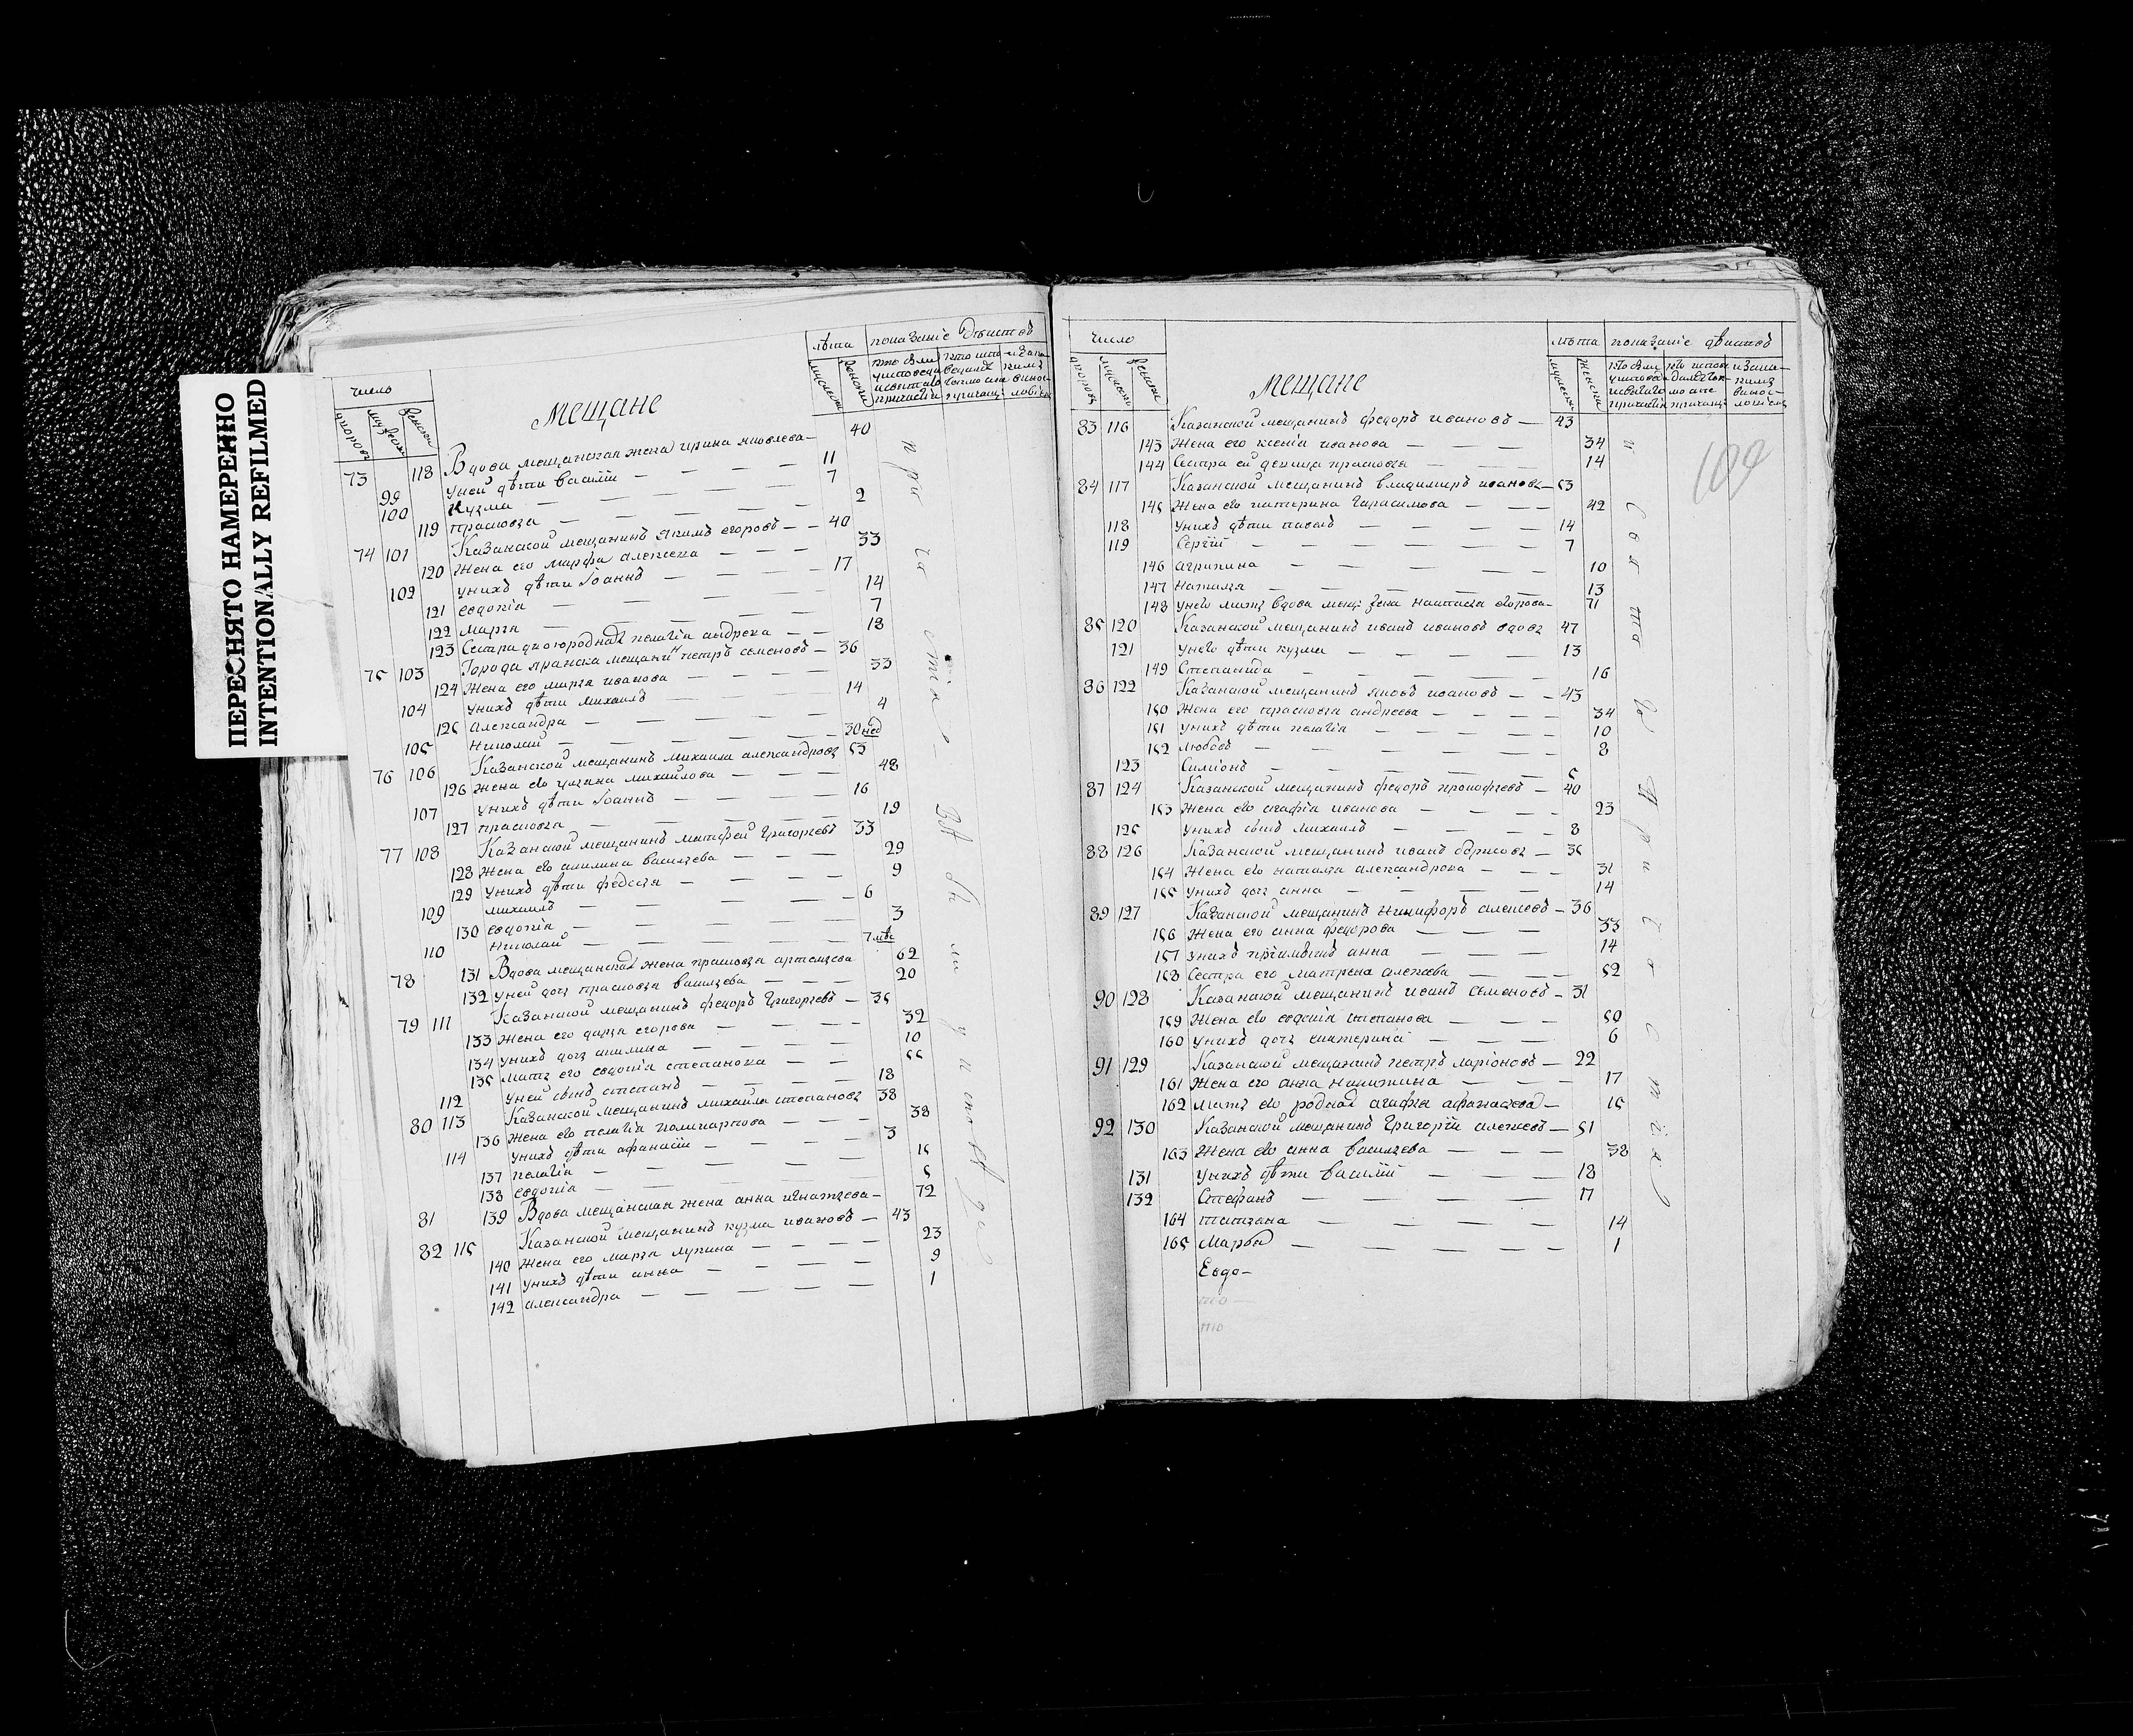 ПЕРЕСНЯТО НАМЕРЕННО
INTENTIONALLY REFILMED
число
мещане
лѣта показанiе дѣистовъ
73 118 Вдова мещанская жена ирина яковлева — 40
99 унеи дѣти василïи — 11
100 Кузма — 7
119 прасковья — 2
74 101 Казанской мещанинъ якимъ егоровъ — 40
120 Жена его марфа алексева — 33
102 унихъ дѣти Iоаннъ — 17
121 евдокiя — 14
122 марья — 7
123 Сестра двоюродная пелагiя андрева — 18
75 103 Города яранска мещанинъ петръ семеновъ — 36
124 Жена его марья иванова — 33
104 унихъ дѣти михаилъ — 14
125 александра — 4
105 николаи — 30 нед
76 106 Казанской мещанинъ михаила александровъ 53
126 жена его ульяна михаилова — 48
107 унихъ дѣти Iоаннъ — 16
127 прасковья — 19
77 108 Казанской мещанинъ матфеи григорьевъ 33
128 жена его акилина васильева — 29
129 унихъ дѣти федосья — 9
109 михаилъ — 6
130 евдокiя — 3
110 николаи — 7 мѣс
78 131 Вдова мещанская жена прасковья артемьева 62
132 унеи дочь прасковья васильева — 20
79 111 Казанской мещанинъ федоръ григорьевъ — 35
133 жена его дарья егорова — 32
134 унихъ дочь акилина — 10
135 мать его евдокiя степанова — 55
112 унеи сынъ степанъ — 18
80 113 Казанской мещанинъ михаила степановъ 38
136 жена его пелагiя поликарпова — 38
114 унихъ дѣти афанасiи — 3
137 пелагiя — 15
138 евдокiя — 5
81 139 Вдова мещанская жена анна игнатьева — 72
82 115 Казанской мещанинъ кузма ивановъ — 43
140 жена его марья лукина — 23
141 унихъ дѣти анна — 9
142 александра — 1
число
мещане
лѣта показанiе дѣистовъ
109
83 116 Казанской мещанинъ федоръ ивановъ — 43
143 жена его ксенiя иванова — 34
144 сестра ей девица прасковья — 14
84 117 Казанской мещанинъ владимиръ ивановъ — 53
145 жена его катерина гарасимова — 42
118 унихъ дѣти павелъ — 14
119 Сергiи — 7
146 агрипина — 10
147 наталья — 13
148 унего мать вдова мещ: жена настасья егорова — 71
85 120 Казанской мещанинъ иванъ ивановъ вдовъ 47
121 унего дѣти кузма — 13
149 Степанида — 16
86 122 Казанской мещанинъ яковъ ивановъ — 43
150 жена его прасковья андреева — 34
151 унихъ дѣти пелагiя — 10
152 любовъ — 8
123 Симïонъ — 5
87 124 Казанской мещанинъ федоръ прокофьевъ — 40
153 жена его агафiя иванова — 23
125 унихъ сынъ михаилъ — 8
88 126 Казанской мещанинъ иванъ борисовъ — 35
154 жена его наталья александрова — 31
155 унихъ дочь анна — 14
89 127 Казанской мещанинъ никифоръ алексевъ — 36
156 жена его анна федорова — 33
157 унихъ анна — 14
158 Сестра его матрена алексева — 52
90 128 Казанской мещанинъ иванъ семеновъ — 31
159 жена его евдокiя степанова — 50
160 унихъ дочь екатерина — 6
91 129 Казанской мещанинъ петръ ларiоновъ — 22
161 жена его анна никитина — 17
162 мать его родная агафья афанасьева — 15
92 130 Казанской мещанинъ григорïи алексевъ — 51
163 жена его анна васильева — 38
131 унихъ дѣти василiи — 18
132 Стефанъ — 17
164 татьяна — 14
165 Марфа — 1
Евдо-